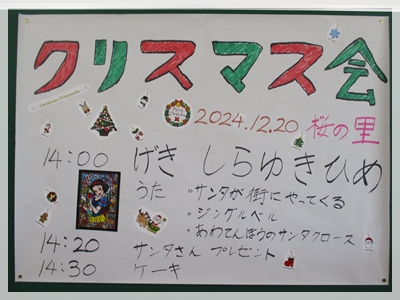 クリスマス会
2024.12.20 桜の里
14:00 げき しらゆきひめ
うた ・サンタが街にやってくる
・ジングルベル
・あわてんぼうのサンタクロース
14:20 サンタさん プレゼント
14:30 ケーキ